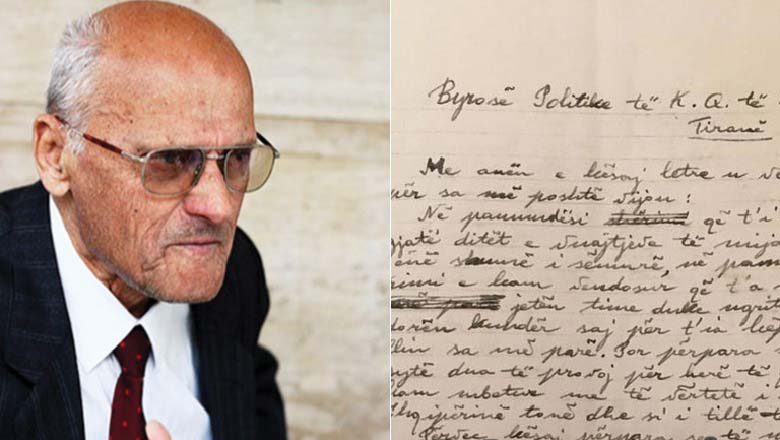 Byrosë Politike të K. Q. të
Tiranë
Me anën e kësaj letre u
për sa më poshtë vijon:
Në pamundësi që t'i
gjatë ditët e vuajtjeve të mija
jenë shumë i sëmurë, në
e kam vendosur që t'a
jetën time duke ngrit
dorën kundër saj për t'ia
sa më parë. Por përpara
dua të provoj për herë të
kam mbetur me të vërtetë i
Shqipërinë tonë dhe si i tillë
Përveç kësaj